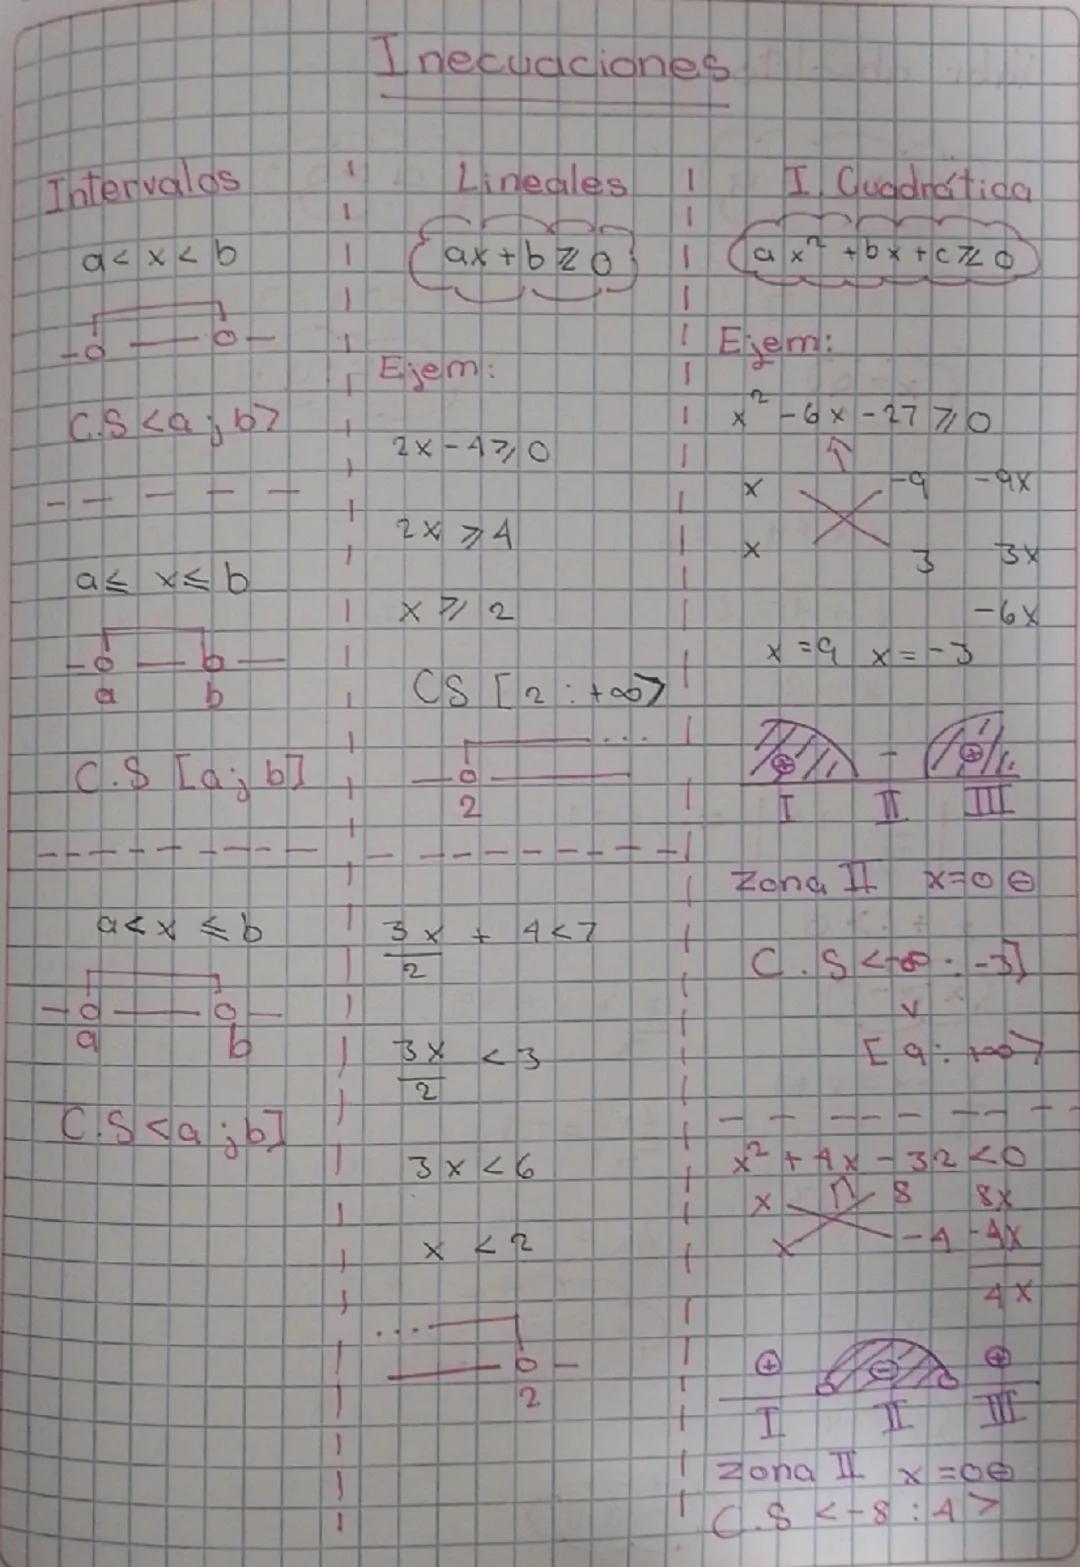 Inecuaciones
Intervalos
a < x < b
C.S <a ; b>
a ≤ x ≤ b
a b
C.S [a ; b]
a < x ≤ b
a b
C.S <a ; b]
Lineales
ax + b ≷ 0
Ejem:
2x - 4 ≥ 0
2x ≥ 4
x ≥ 2
CS [2 : +∞>
2
3x/2 + 4 < 7
3x/2 < 3
3x < 6
x < 2
2
I. Cuadrática
ax² + bx + c ≷ 0
Ejem:
x² - 6x - 27 ≥ 0
x -9 -9x
x 3 3x
-6x
x = 9 x = -3
⊕ - ⊕
I II III
Zona II x=0 ⊖
C.S <-∞ : -3]
v
[9 : +∞>
x² + 4x - 32 < 0
x 8 8x
x -4 -4x
4x
⊕ ⊖ ⊕
I II III
Zona II x=0 ⊖
C.S <-8 : 4>